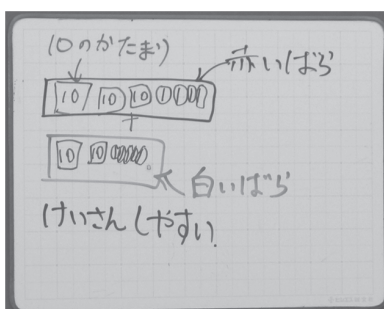 10のかたまり
赤いばら
10 10 10 1 1 1 1
+
10 10
白いばら
けいさんしやすい